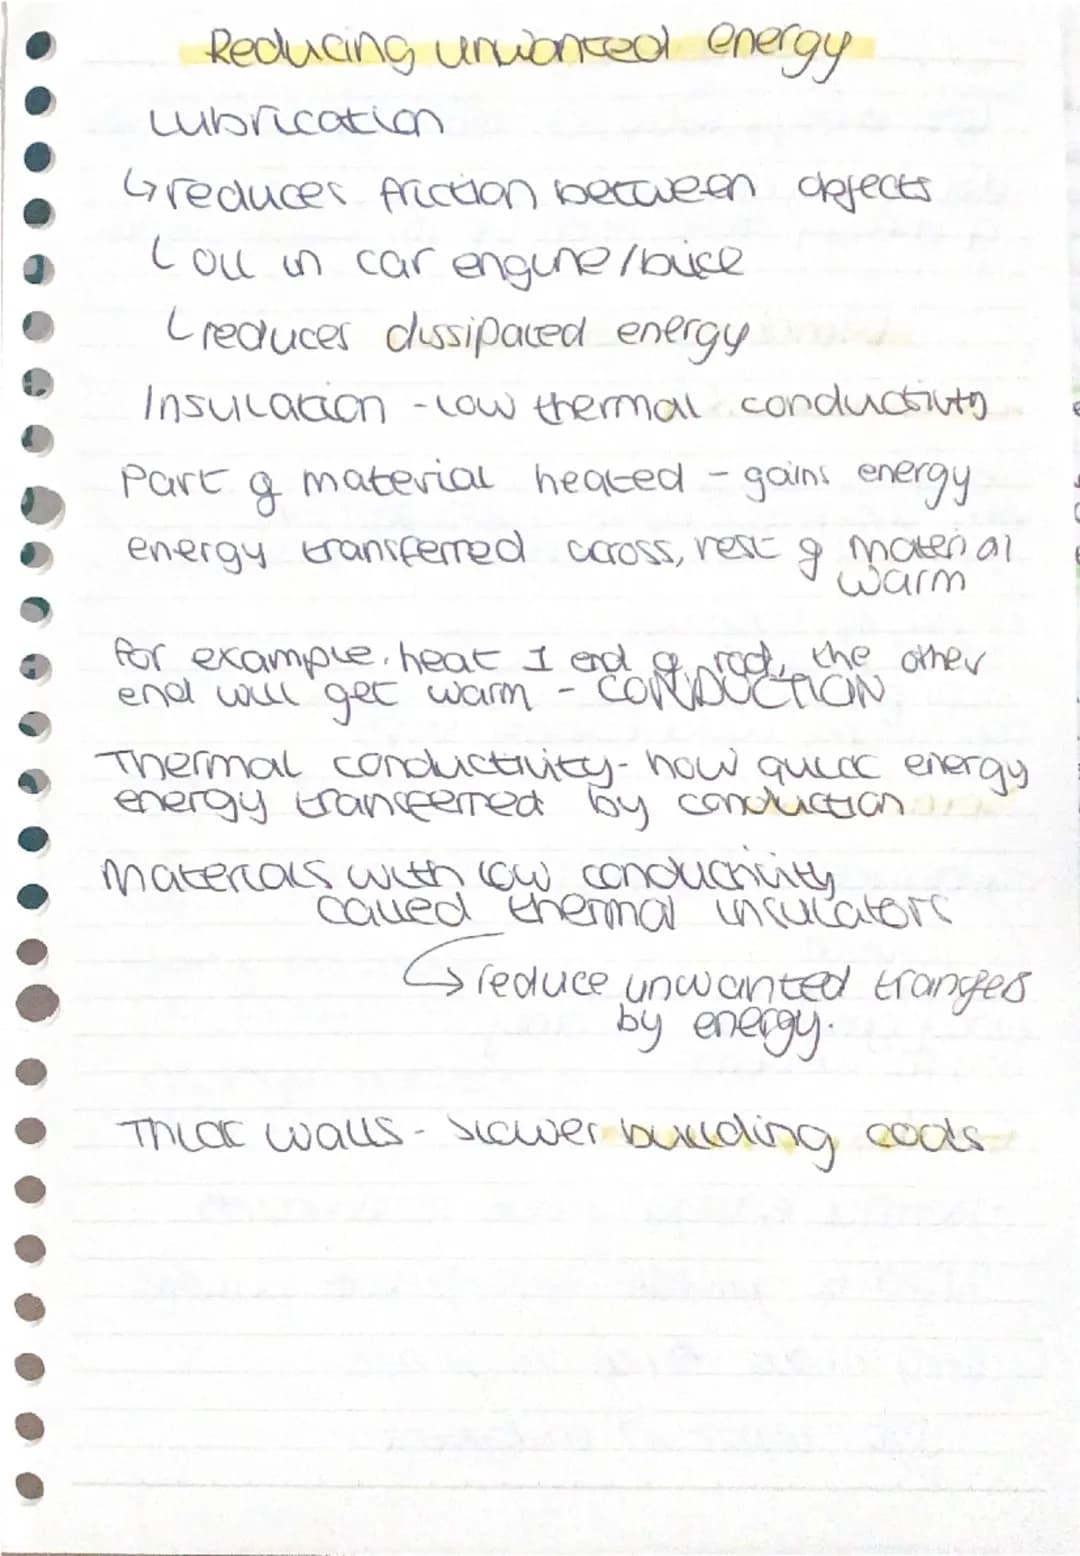 Reducing unwanted energy
Lubrication
↳ reduces friction between objects
└ oil in car engine/bike
└ reduces dissipated energy
Insulation - low thermal conductivity
Part of material heated - gains energy
energy transferred across, rest of material
warm
for example, heat 1 end of rod, the other
end will get warm - CONDUCTION
Thermal conductivity - how quick energy
energy transferred by conduction
Materials with low conductivity
called thermal insulators
↳ reduce unwanted transfers
by energy.
Thick walls - slower building cools